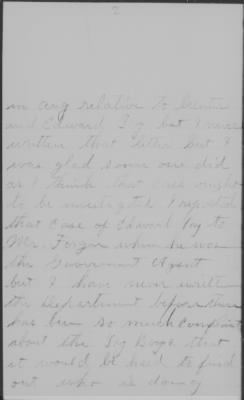 2
in ang relative to
and Edward I g but I never
written that letter but I
was glad some one did
as I think that case ought
to be investigated I reported
that case of Edward Ivy to
Mr. when he was
the Government Agent
but I have never written
the Department before there
has been so much complaint
about the Boys that
it would be hard to find
out who is doing